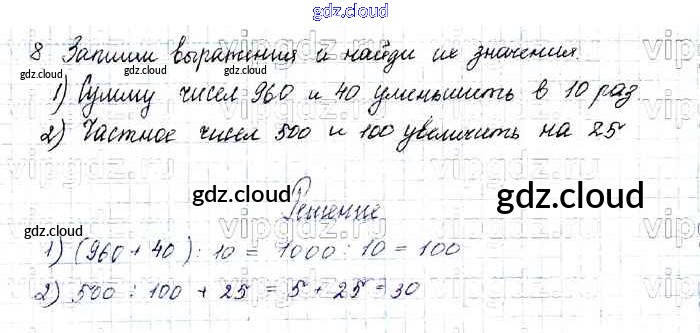 gdz.cloud
8 Запиши выражения и найди их значения.
gdz.cloud gdz.cloud
1) Сумму чисел 960 и 40 уменьшить в 10 раз
2) Частное чисел 500 и 100 увеличить на 25
vipgdz.ru
gdz.cloud gdz.cloud gdz.cloud
Решение
1) (960 + 40) : 10 = 1000 : 10 = 100
gdz.cloud
2) 500 : 100 + 25 = 5 + 25 = 30
gdz.cloud